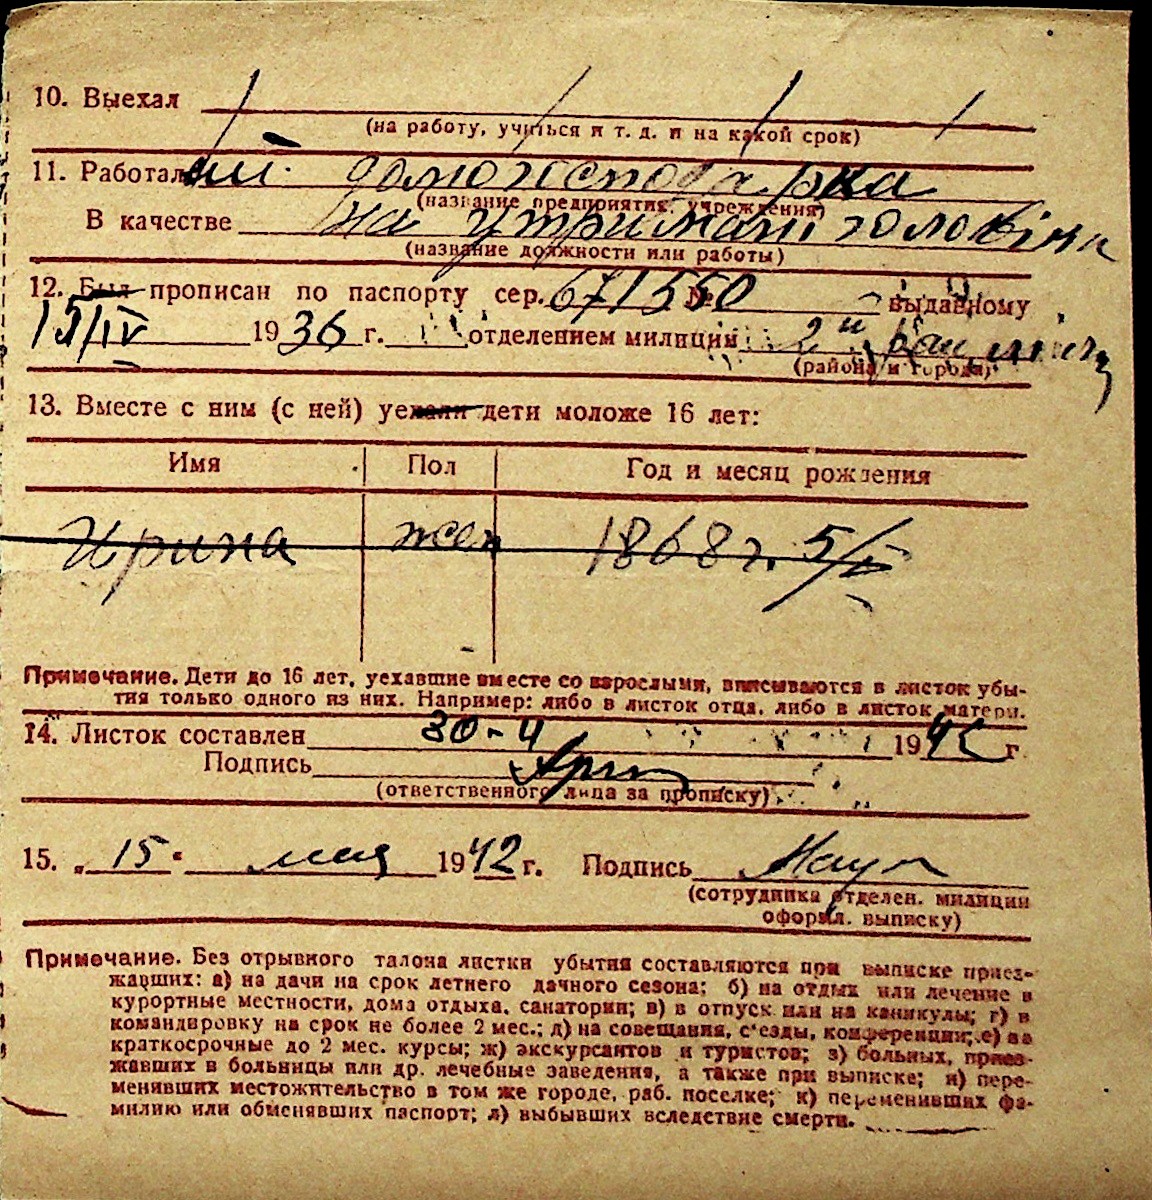 10. Выехал
(на работу, учиться и т. д. и на какой срок)
11. Работал домогосподарка
(название предприятия, учреждения)
В качестве на утриманні чоловіка
(название должности или работы)
12. Был прописан по паспорту сер. 671550 № выданному
15/IV 1936 г. отделением милиции 2й
(района и города)
13. Вместе с ним (с ней) уехали дети моложе 16 лет:
Имя Пол Год и месяц рождения
Ирина жен 1868 г. 5/V
Примечание. Дети до 16 лет, уехавшие вместе со взрослыми, вписываются в листок убы-
тия только одного из них. Например: либо в листок отца, либо в листок матери.
14. Листок составлен 30-4 1942 г
Подпись
(ответственного лица за прописку)
15. „ 15 " мая 1942 г. Подпись
(сотрудника отделен. милиции
оформл. выписку)
Примечание. Без отрывного талона листки убытия составляются при выписке приез-
жавших: а) на дачи на срок летнего дачного сезона; б) на отдых или лечение в
курортные местности, дома отдыха, санатории; в) в отпуск или на каникулы; г) в
командировку на срок не более 2 мес.; д) на совещания, с'езды, конференции; е) на
краткосрочные до 2 мес. курсы; ж) экскурсантов и туристов; з) больных, приез-
жавших в больницы или др. лечебные заведения, а также при выписке; и) пере-
менивших местожительство в том же городе, раб. поселке; к) переменивших фа-
милию или обменявших паспорт; л) выбывших вследствие смерти.